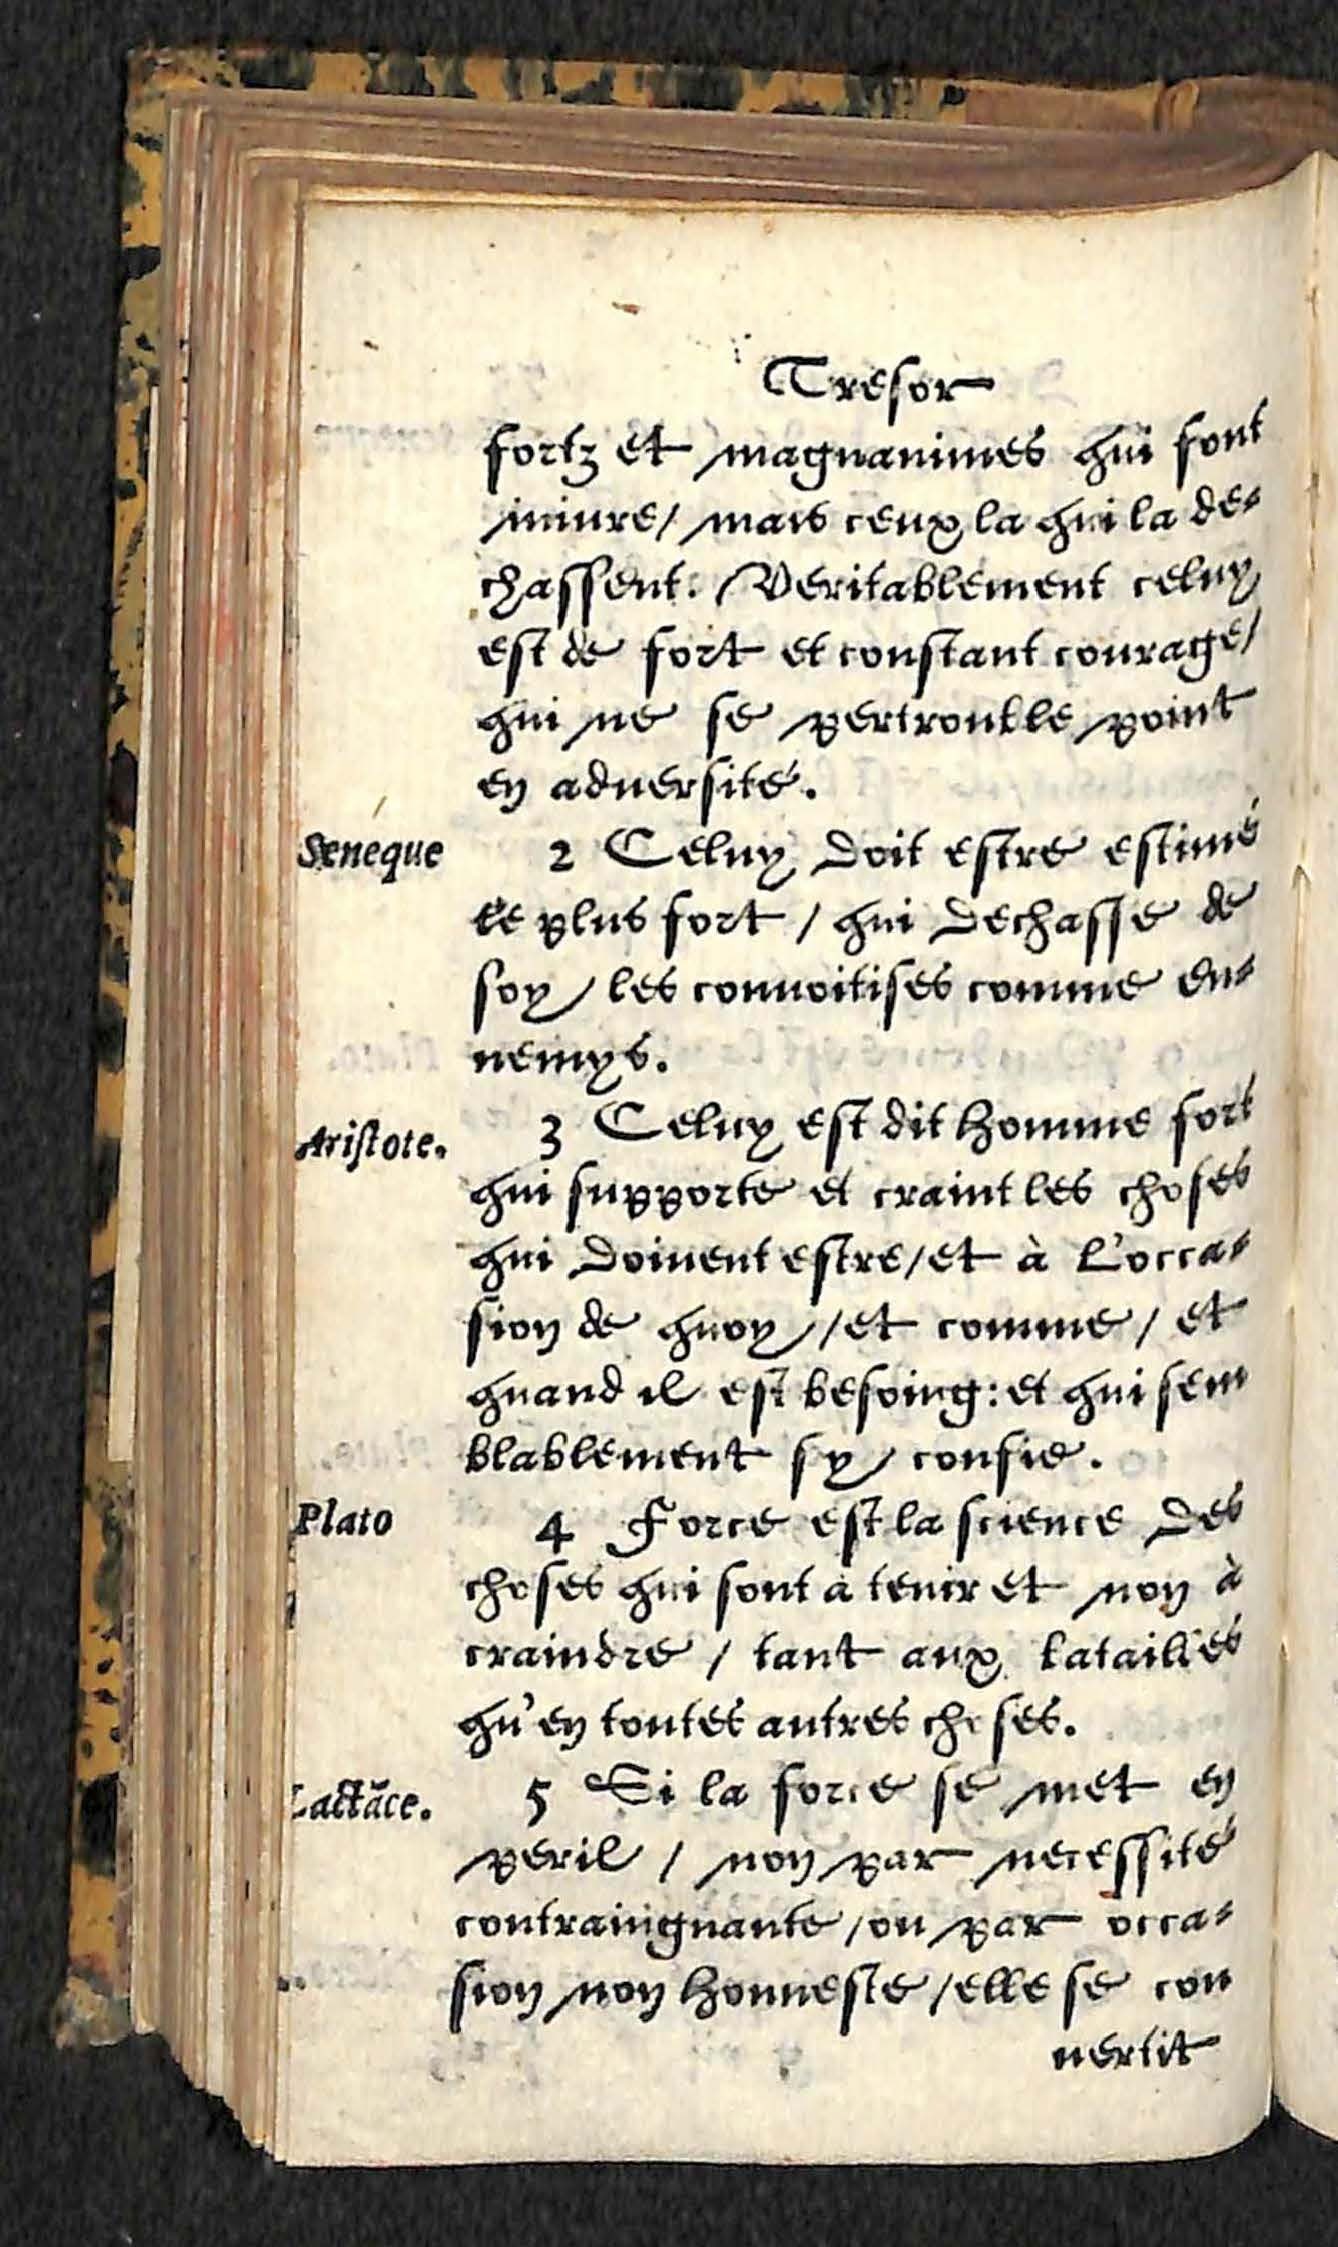 Tresor
fortz et magnanimes qui font
iniure/ mais ceux la qui la de-
chassent. Veritablement celuy
est de fort et constant courage/
qui ne se pertrouble point
en aduersité.
Seneque
2 Celuy doit estre estimé
le plus fort / qui dechasse de
soy les conuoitises comme en-
nemys.
Aristote.
3 Celuy est dit homme fort
qui supporte et craint les choses
qui doiuent estre/et à l'occa-
sion de quoy /et comme / et
quand il est besoing: et qui sem
blablement s'y confie.
Plato
4 Force est la science des
choses qui sont a tenir et non à
craindre / tant aux batailles
qu'en toutes autres choses.
Lactāce.
5 Si la force se met en
peril / non par necessité
contraingnante /ou par occa-
sion non honneste /elle se con
uertit